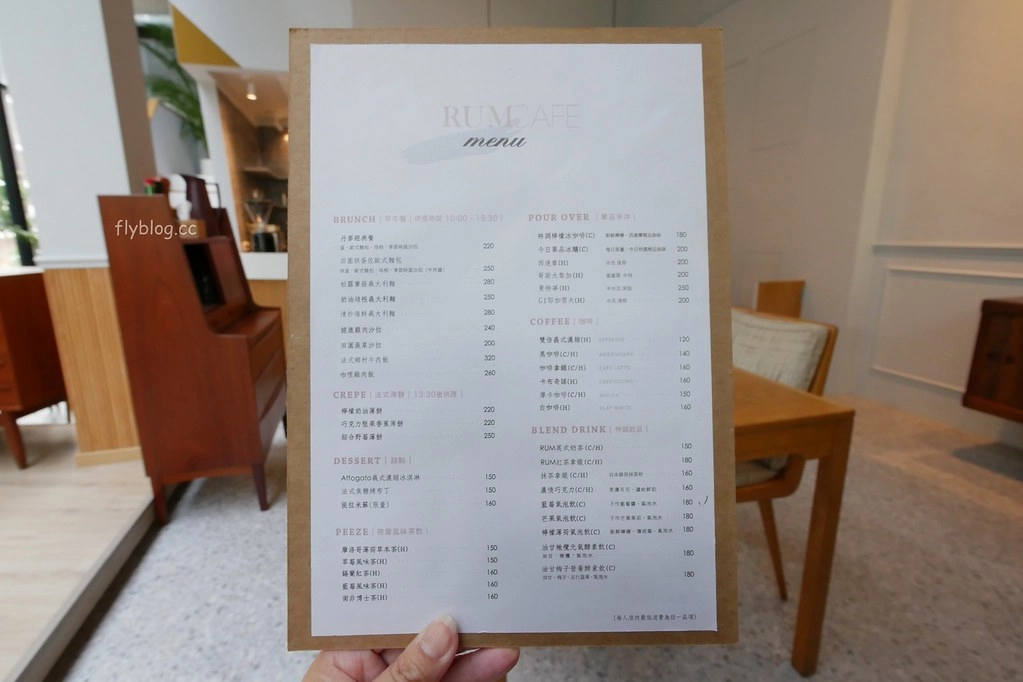 flyblog.cc
RUM CAFE
menu
BRUNCH | 早午餐 | 供應時間 10:00 - 15:30 |
丹麥經典餐 220
田園烘蛋佐歐式麵包 250
松露蕈菇義大利麵 280
奶油培根義大利麵 250
清炒海鮮義大利麵 280
健康雞肉沙拉 240
田園蔬菜沙拉 200
法式鄉村牛肉飯 320
咖哩雞肉飯 260
CREPE | 法式薄餅 | 13:30後供應 |
檸檬奶油薄餅 220
巧克力堅果香蕉薄餅 220
綜合野莓薄餅 250
DESSERT | 甜點 |
Affogato義式濃縮冰淇淋 150
法式焦糖烤布丁 150
提拉米蘇(限量) 160
PEEZE | 荷蘭風味茶飲 |
摩洛哥薄荷草本茶(H) 150
草莓風味茶(H) 150
錫蘭紅茶(H) 160
藍莓風味茶(H) 160
南非博士茶(H) 160
POUR OVER | 單品手沖 |
特調檸檬冰咖啡(C) 180
今日單品冰釀(C) 200
西達摩(H) 200
哥斯大黎加(H) 200
曼特寧(H) 250
G1耶加雪夫(H) 200
COFFEE | 咖啡 |
雙倍義式濃縮(H) ESPRESSO 120
黑咖啡(C/H) AMERICANO 140
咖啡拿鐵(C/H) CAFE LATTE 160
卡布奇諾(H) CAPPUCCINO 160
摩卡咖啡(C/H) MOCHA 150
白咖啡(H) FLAT WHITE 160
BLEND DRINK | 特調飲品 |
RUM英式奶茶(C/H) 150
RUM紅茶拿鐵(C/H) 180
抹茶拿鐵(C/H) 160
濃情巧克力(C/H) 160
藍莓氣泡飲(C) 手作藍莓醬、氣泡水 180
芒果氣泡飲(C) 手作芒果果泥、氣泡水 180
檸檬薄荷氣泡飲(C) 180
油甘橄欖元氣酵素飲(C) 180
油甘、橄欖、氣泡水
油甘梅子營養酵素飲(C) 180
(每人須付最低消費為任一品項)